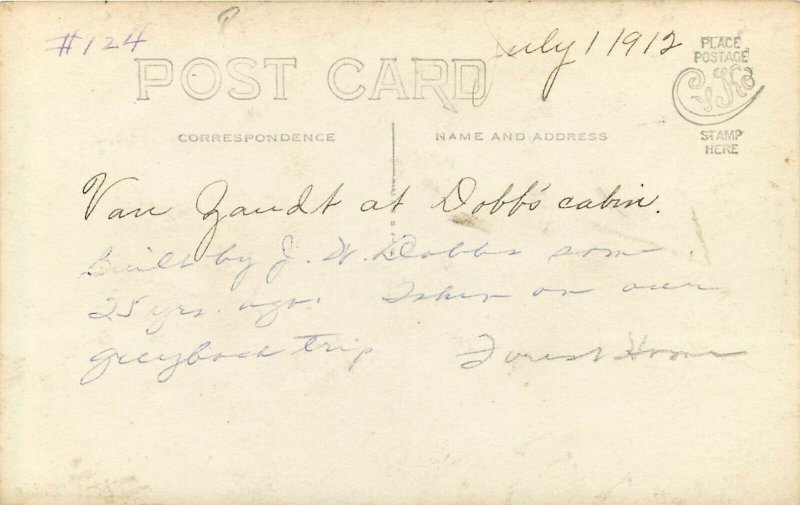 #124
July 1 1912
POST CARD
PLACE
POSTAGE
CYKO
STAMP
HERE
CORRESPONDENCE
NAME AND ADDRESS
Van Zandt at Dobb's cabin.
Built by J. W. Dobbs some
25 yrs. ago. Taken on our
greyback trip Forest Home